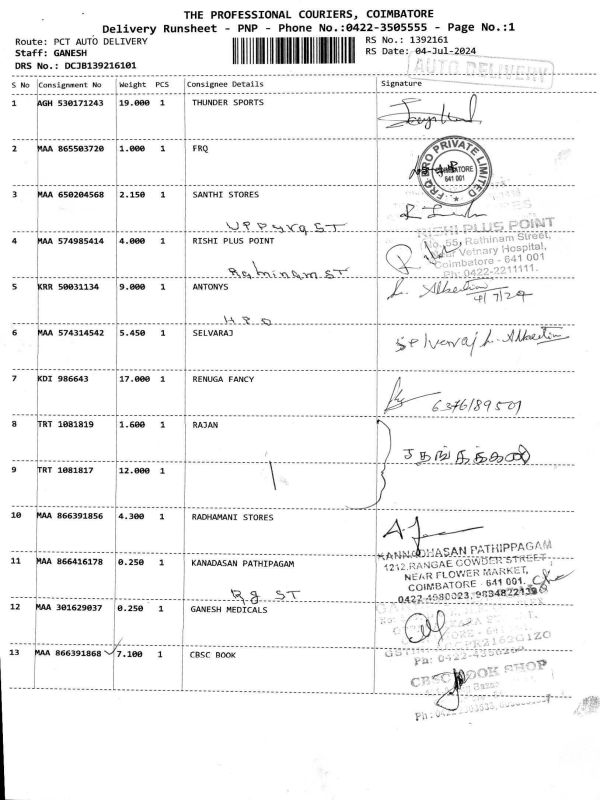 THE PROFESSIONAL COURIERS, COIMBATORE
Delivery Runsheet - PNP - Phone No.:0422-3505555 - Page No.:1
Route: PCT AUTO DELIVERY RS No.: 1392161
Staff: GANESH RS Date: 04-Jul-2024
DRS No.: DCJB139216101 AUTO DELIVERY
S No Consignment No Weight PCS Consignee Details Signature
1 AGH 530171243 19.000 1 THUNDER SPORTS
2 MAA 865503720 1.000 1 FRQ
FRQ PRO PRIVATE LIMITED
COIMBATORE
641 001
3 MAA 650204568 2.150 1 SANTHI STORES
UPPURA ST
RISHI PLUS POINT
4 MAA 574985414 4.000 1 RISHI PLUS POINT
No. 55, Rathinam Street,
Near Vetnary Hospital,
Coimbatore - 641 001
Ph: 0422-2211111.
Rathinam ST
5 KRR 50031134 9.000 1 ANTONYS
L. Albertin
4/7/24
H.P.O
6 MAA 574314542 5.450 1 SELVARAJ
Selvaraj L. Albertin
7 KDI 986643 17.000 1 RENUGA FANCY
6376189501
8 TRT 1081819 1.600 1 RAJAN
9 TRT 1081817 12.000 1
10 MAA 866391856 4.300 1 RADHAMANI STORES
KANNADHASAN PATHIPPAGAM
11 MAA 866416178 0.250 1 KANADASAN PATHIPAGAM
1212, RANGAE GOWDER STREET
NEAR FLOWER MARKET,
COIMBATORE - 641 001.
R.g ST
12 MAA 301629037 0.250 1 GANESH MEDICALS
13 MAA 866391868 7.100 1 CBSC BOOK
CBSC BOOK SHOP